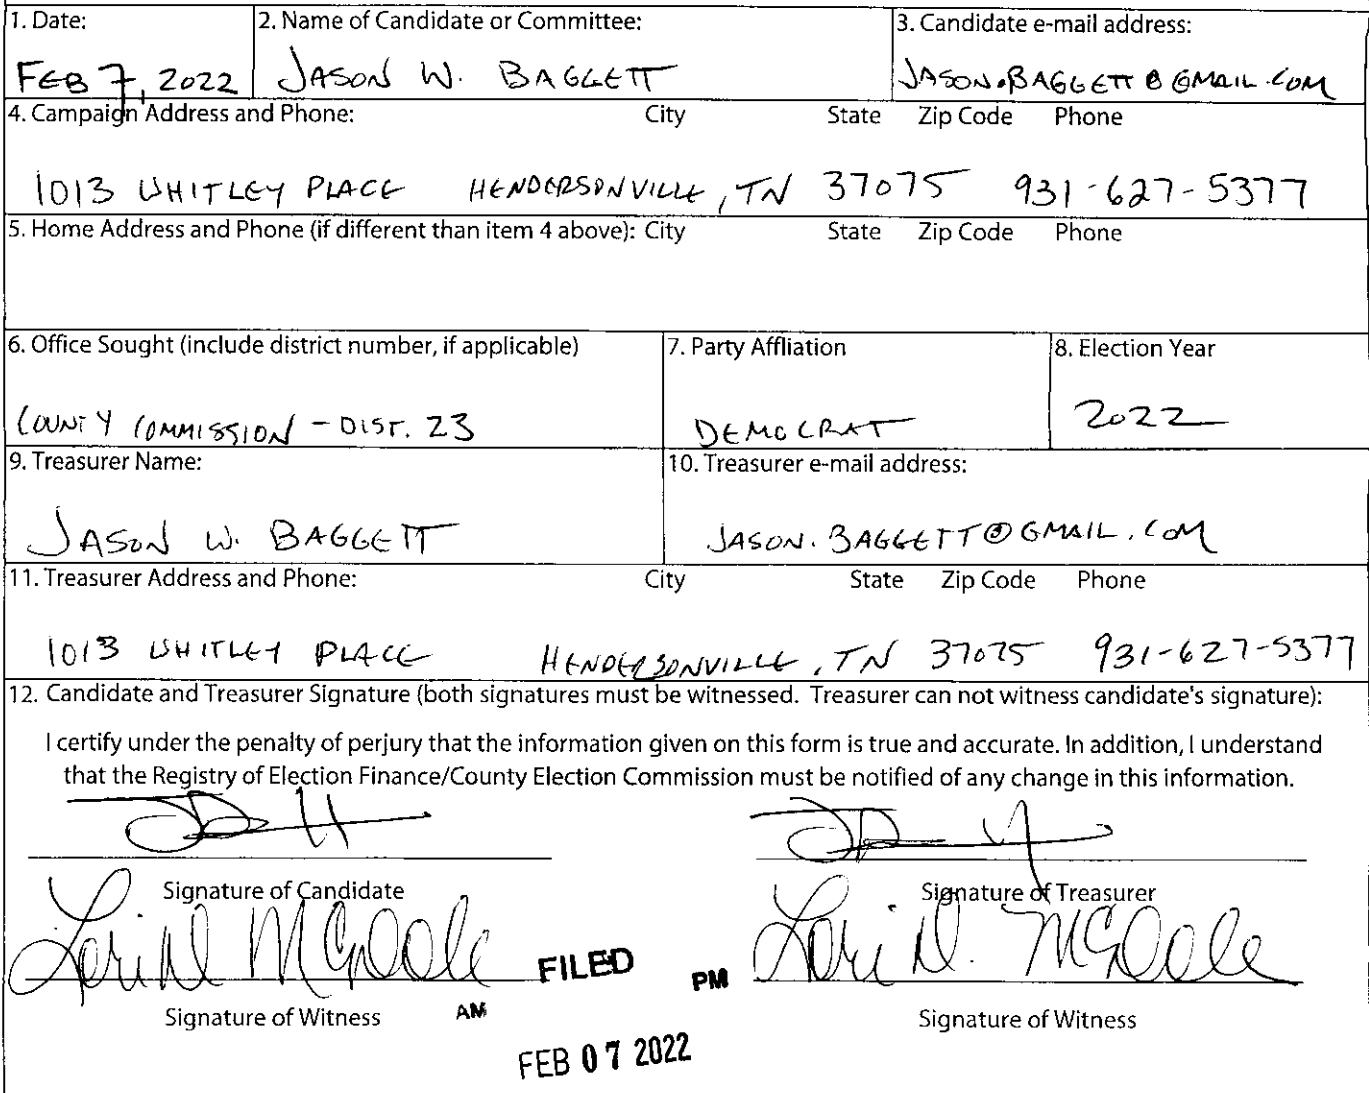 1. Date:
2. Name of Candidate or Committee:
3. Candidate e-mail address:
FEB 7, 2022
JASON W. BAGGETT
JASON.BAGGETT@GMAIL.COM
4. Campaign Address and Phone: City State Zip Code Phone
1013 WHITLEY PLACE HENDERSONVILLE, TN 37075 931-627-5377
5. Home Address and Phone (if different than item 4 above): City State Zip Code Phone
6. Office Sought (include district number, if applicable)
7. Party Affliation
8. Election Year
COUNTY COMMISSION - DIST. 23
DEMOCRAT
2022
9. Treasurer Name:
10. Treasurer e-mail address:
JASON W. BAGGETT
JASON.BAGGETT@GMAIL.COM
11. Treasurer Address and Phone: City State Zip Code Phone
1013 WHITLEY PLACE HENDERSONVILLE, TN 37075 931-627-5377
12. Candidate and Treasurer Signature (both signatures must be witnessed. Treasurer can not witness candidate's signature):
I certify under the penalty of perjury that the information given on this form is true and accurate. In addition, I understand
that the Registry of Election Finance/County Election Commission must be notified of any change in this information.
Signature of Candidate
Signature of Treasurer
Lori
Lori D.
FILED
AM
PM
Signature of Witness
Signature of Witness
FEB 07 2022